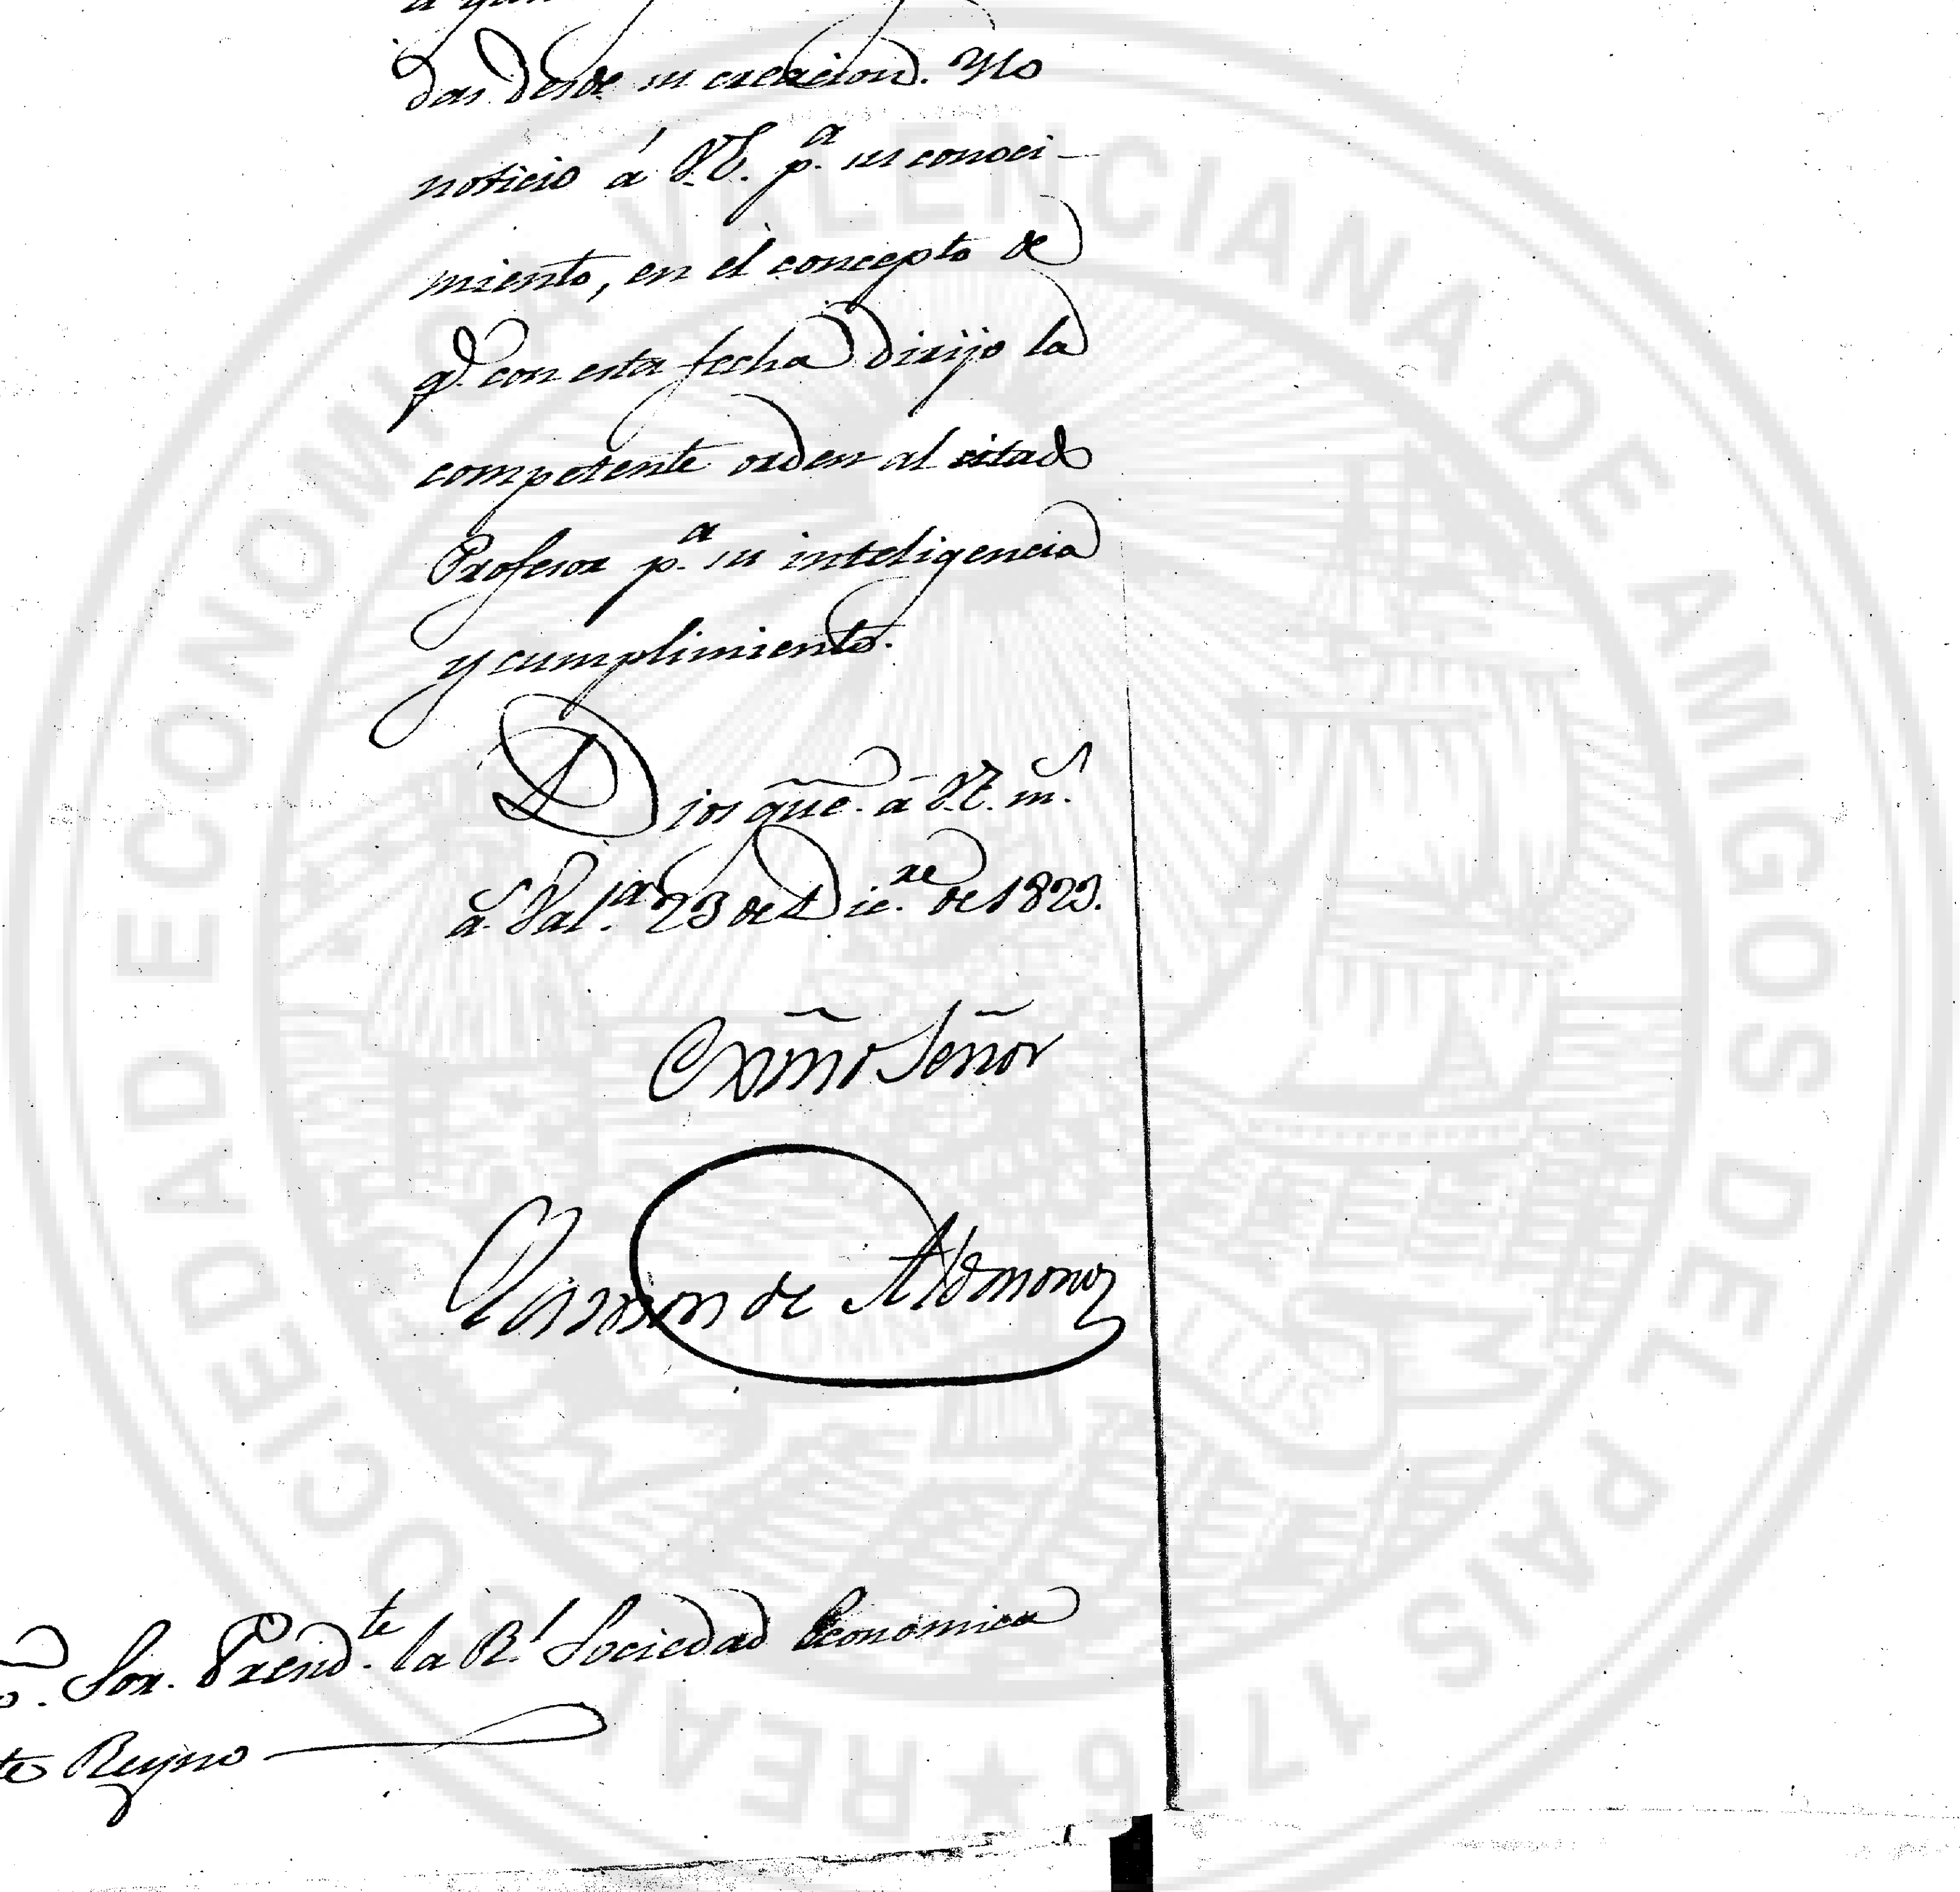 das desde su creacion. Ylo
noticio á V.E. p.ª su conoci-
miento, en el concepto de
q.e con esta fecha dirijo la
competente orden al citado
Profesor p.ª su inteligencia
y cumplimiento.
Dios gũe. á V.E. m.s
a.s Val.ia 23 de Dic.re de 1823.
Exm̃o Señor
Ramon de Aldmonar
Sor. Presid.te la R.l Sociedad Economica
Reyno
REAL SOCIEDAD ECONOMICA VALENCIANA DE AMIGOS DEL PAIS 1776